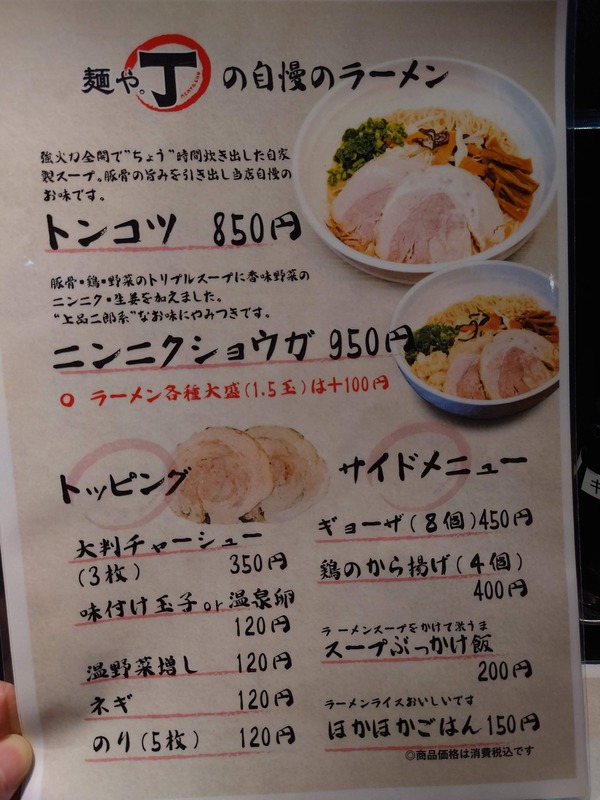 麺や。丁の自慢のラーメン
強火力全開で"ちょう"時間炊き出した自家
製スープ。豚骨の旨みを引き出し当店自慢の
お味です。
トンコツ 850円
豚骨・鶏・野菜のトリプルスープに香味野菜の
ニンニク・生姜を加えました。
"上品二郎系"なお味にやみつきです。
ニンニクショウガ 950円
○ ラーメン各種大盛(1.5玉)は+100円
トッピング
大判チャーシュー
(3枚) 350円
味付け玉子or温泉卵
120円
温野菜増し 120円
ネギ 120円
のり(5枚) 120円
サイドメニュー
ギョーザ(8個)450円
鶏のから揚げ(4個)
400円
ラーメンスープをかけて激うま
スープぶっかけ飯
200円
ラーメンライスおいしいです
ほかほかごはん150円
◎商品価格は消費税込です